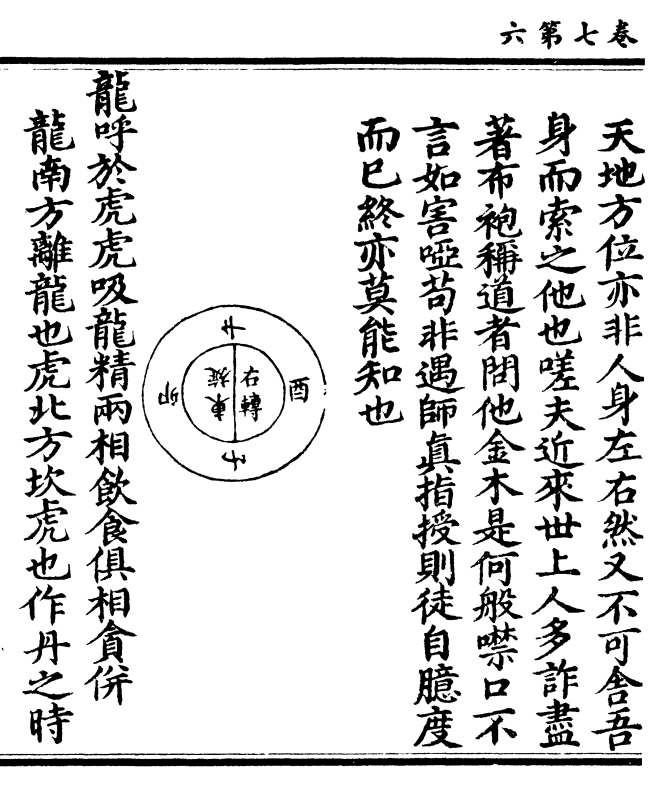 卷七第六
天地方位亦非人身左右然又不可舍吾
身而索之他也嗟夫近來世上人多詐盡
著布袍稱道者問他金木是何般噤口不
言如害啞苟非遇師眞指授則徒自臆度
而已終亦莫能知也
午
酉
右轉
東旋
卯
子
龍呼於虎虎吸龍精兩相飲食俱相貪併
龍南方離龍也虎北方坎虎也作丹之時